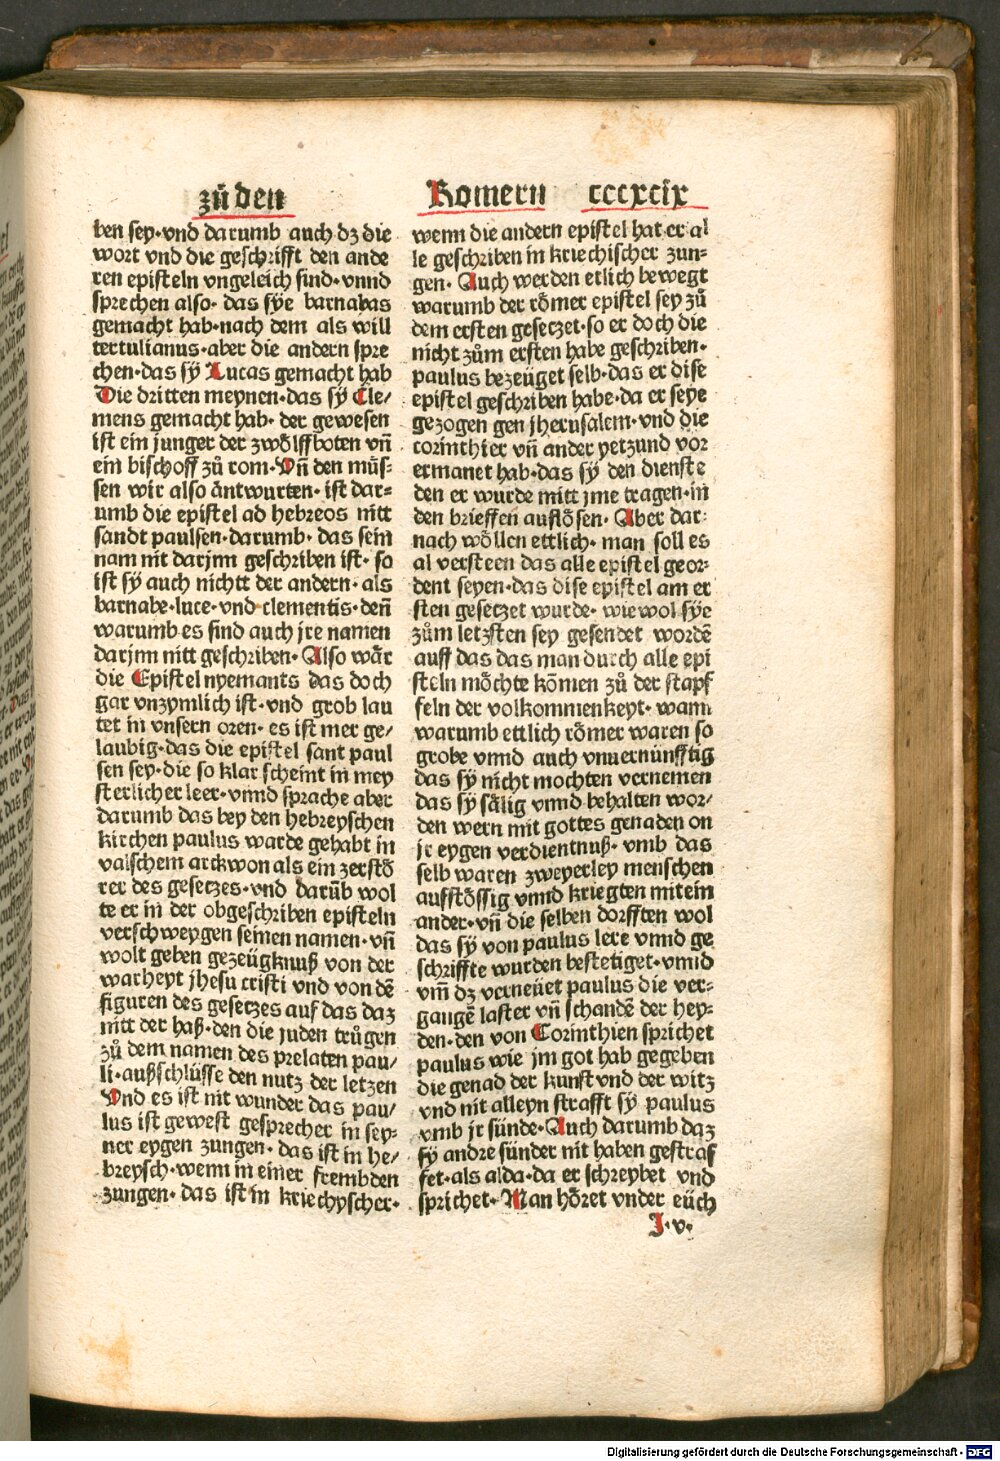 zů den Romern cccxcix
ben sey·vnd darumb auch dz die
wort vnd die geschrifft den ande
ren episteln vngeleich sind·vnnd
sprechen also· das sÿe barnabas
gemacht hab·nach dem als will
tertulianus·aber die andern spre
chen·das sÿ Lucas gemacht hab
Die dritten meynen·das sÿ Cle/
mens gemacht hab· der gewesen
ist ein junger der zwölffboten vñ
ein bischoff zů rom·Vñ den müs-
sen wir also antwurten· ist dar-
umb die epistel ad hebreos nitt
sandt paulsen·darumb· das sein
nam nit darjnn geschriben ist· so
ist sÿ auch nichtt der andern· als
barnabe·luce·vnd clementis·deñ
warumb es sind auch jre namen
darjnn nitt geschriben· Also wär
die Epistel nyemants das doch
gar vnzymlich ist·vnd grob lau
tet in vnsern oren· es ist mer ge/
laubig·das die epistel sant paul
sen sey·die so klar scheint in mey
sterlicher leer·vnnd sprache aber
darumb das bey den hebreyschen
kirchen paulus warde gehabt in
valschem arckwon als ein zerstö
rer des gesetzes·vnd darüb wol
te er in der obgeschriben episteln
verschweygen seinen namen·vñ
wolt geben gezeügknuß von der
warheyt jhesu cristi vnd von dē
figuren des gesetzes auf das daz
nitt der haß·den die juden trůgen
zů dem namen des prelaten pau/
li·außschlüsse den nutz der letzen
Vnd es ist nit wunder das pau/
lus ist gewest gesprecher in sey-
ner eygen zungen· das ist in he/
breysch·wenn in einer frembden
zungen· das ist in kriechyscher·
wenn die andern epistel hat er al
le geschriben in kriechischer zun-
gen· Auch werden etlich bewegt
warumb der römer epistel sey zů
dem ersten gesetzet·so er doch die
nicht zům ersten habe geschriben·
paulus bezeüget selb·das er dise
epistel geschriben habe·da er seye
gezogen gen jherusalem·vnd die
corinthier vñ ander yetzund vor
ermanet hab·das sÿ den dienste
den er wurde mitt jme tragen·in
den brieffen auflösen· Aber dar-
nach wöllen ettlich· man soll es
al versteen das alle epistel geor-
dent seyen·das dise epistel am er
sten gesetzet wurde· wie wol sÿe
zům letzsten sey gesendet wordē
auff das das man durch alle epi
steln möchte kōmen zů der stapf
feln der volkommenkeyt· wann
warumb ettlich römer waren so
grobe vnnd auch vnuernünfftig
das sÿ nicht mochten vernemen
das sÿ sälig vnnd behalten wor/
den wern mit gottes genaden on
jr eygen verdientnuß· vmb das
selb waren zweyerley menschen
aufstössig vnnd kriegten mitein
ander·vñ die selben dorfften wol
das sÿ von paulus lere vnnd ge
schriffte wurden bestetiget·vnnd
vm̄ dz verneüet paulus die ver-
gangē laster vñ schandē der hey-
den·den von Corinthien sprichet
paulus wie jm got hab gegeben
die genad der kunst vnd der witz
vnd nit alleyn strafft sÿ paulus
vmb jr sünde·Auch darumb daz
sÿ andre sünder nit haben gestraf
fet·als alda·da er schreybet vnd
sprichet·Man höret vnder eüch
J·v·
Digitalisierung gefördert durch die Deutsche Forschungsgemeinschaft - DFG